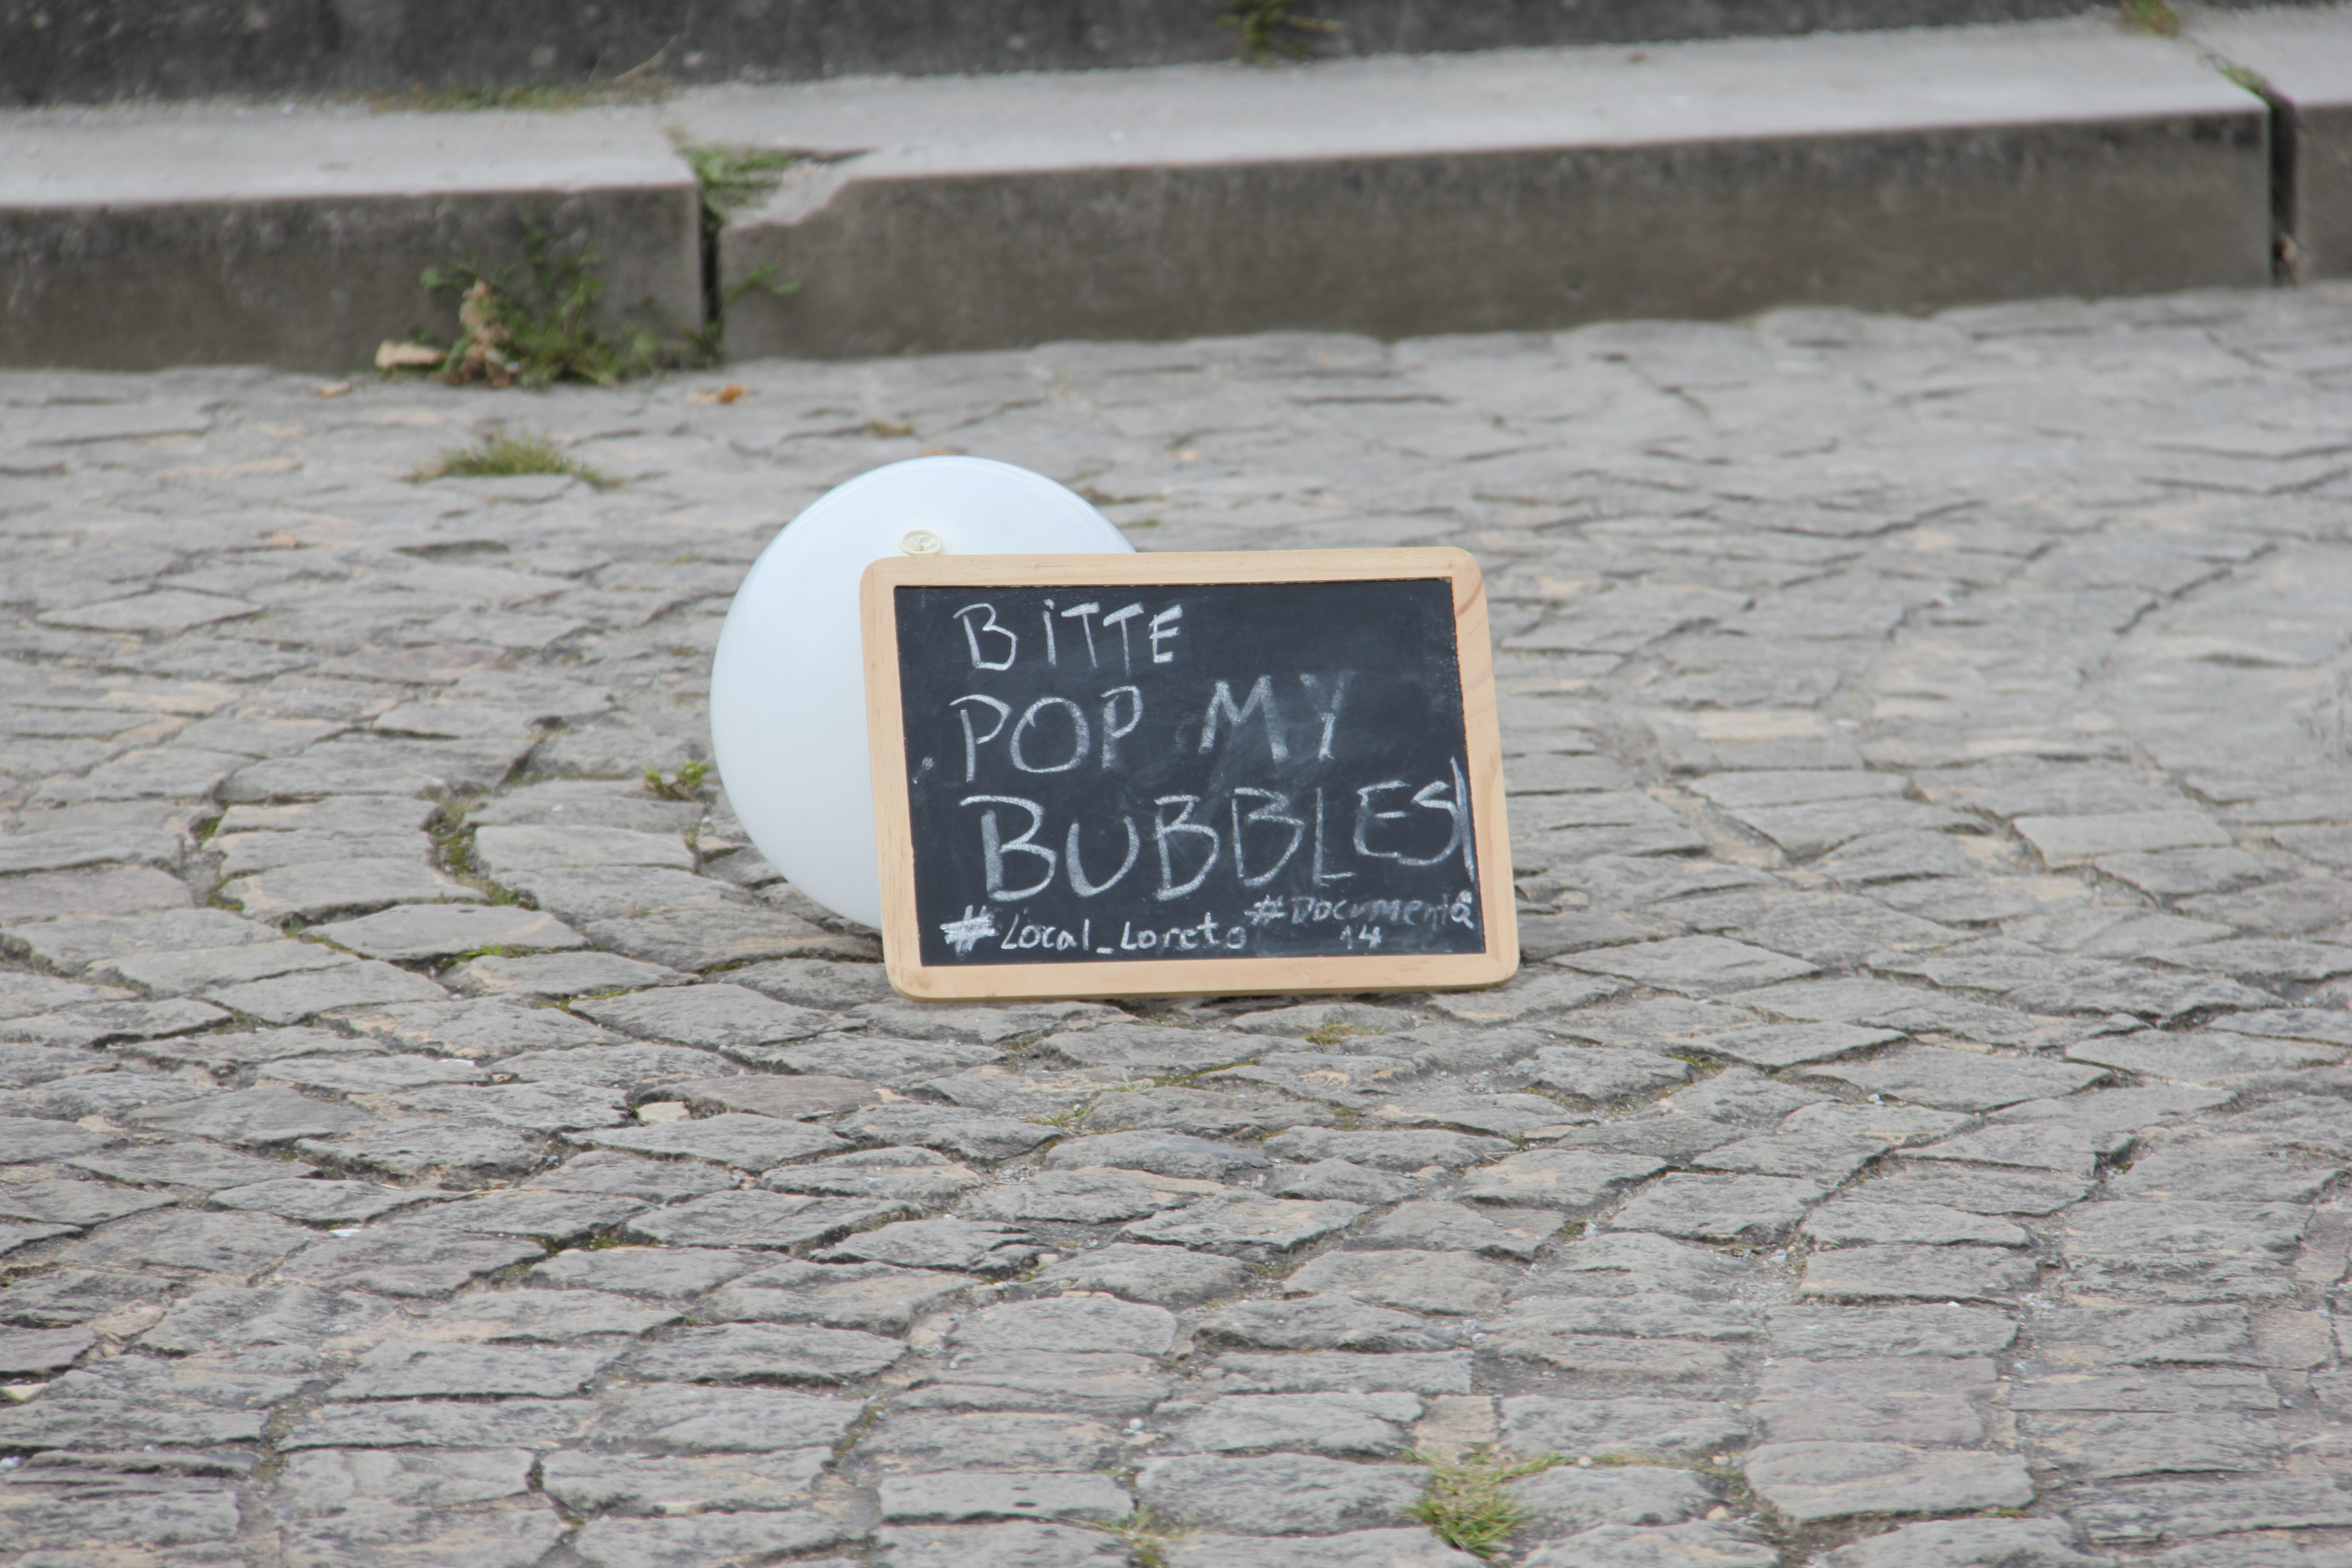 BiTTE
POP MY
BUBBLES!
#Local_Loreto #Documenta
14